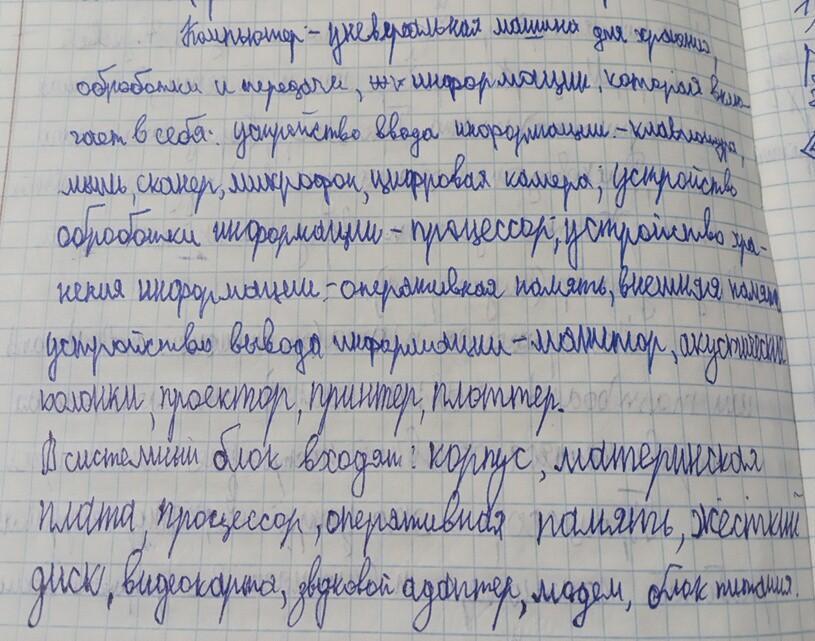 Компьютер - уневерсальная машина для хранения,
обработки и передачи, информации, которая вклю-
чает в себя: устройство ввода информации - клавиатура,
мышь, сканер, микрофон, цифровая камера; устройство
обработки информации - процессор; устройство хра-
нения информации - оперативная память, внешняя память
устройство вывода информации - монитор, акустические
колонки, проектор, принтер, плоттер.
В системный блок входят: корпус, материнская
плата, процессор, оперативная память, жёсткий
диск, видеокарта, звуковой адаптер, модем, блок питания.